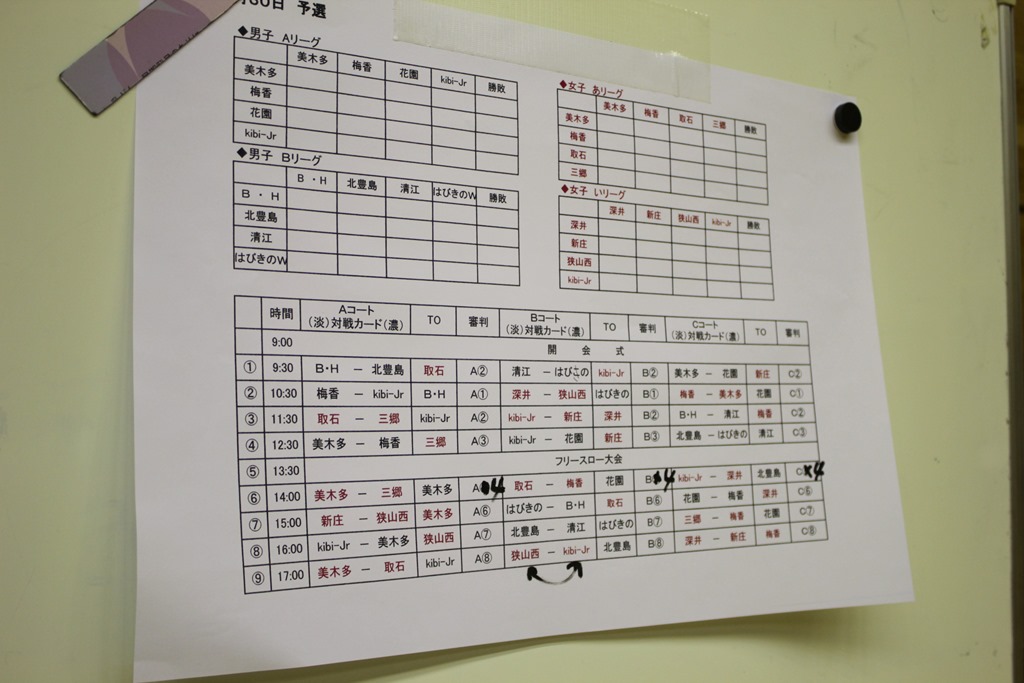 30日 予選
◆男子 Aリーグ
美木多 梅香 花園 kibi-Jr 勝敗
美木多
梅香
花園
kibi-Jr
◆男子 Bリーグ
B・H 北豊島 清江 はびきのW 勝敗
B・H
北豊島
清江
はびきのW
◆女子 あリーグ
美木多 梅香 取石 三郷 勝敗
美木多
梅香
取石
三郷
◆女子 いリーグ
深井 新庄 狭山西 kibi-Jr 勝敗
深井
新庄
狭山西
kibi-Jr
時間 Aコート TO 審判 Bコート TO 審判 Cコート TO 審判
(淡)対戦カード(濃) (淡)対戦カード(濃) (淡)対戦カード(濃)
9:00 開 会 式
① 9:30 B・H － 北豊島 取石 A② 清江 － はびこの kibi-Jr B② 美木多 － 花園 新庄 C②
② 10:30 梅香 － kibi-Jr B・H A① 深井 － 狭山西 はびきの B① 梅香 － 美木多 花園 C①
③ 11:30 取石 － 三郷 kibi-Jr A② kibi-Jr － 新庄 深井 B② B・H － 清江 梅香 C②
④ 12:30 美木多 － 梅香 三郷 A③ kibi-Jr － 花園 新庄 B③ 北豊島 － はびきの 清江 C③
⑤ 13:30 フリースロー大会
⑥ 14:00 美木多 － 三郷 美木多 A4 取石 － 梅香 花園 B4 kibi-Jr － 深井 北豊島 C4
⑦ 15:00 新庄 － 狭山西 美木多 A⑥ はびきの － B・H 取石 B⑥ 花園 － 梅香 深井 C⑥
⑧ 16:00 kibi-Jr － 美木多 狭山西 A⑦ 北豊島 － 清江 はびきの B⑦ 三郷 － 梅香 花園 C⑦
⑨ 17:00 美木多 － 取石 kibi-Jr A⑧ 狭山西 － kibi-Jr 北豊島 B⑧ 深井 － 新庄 梅香 C⑧